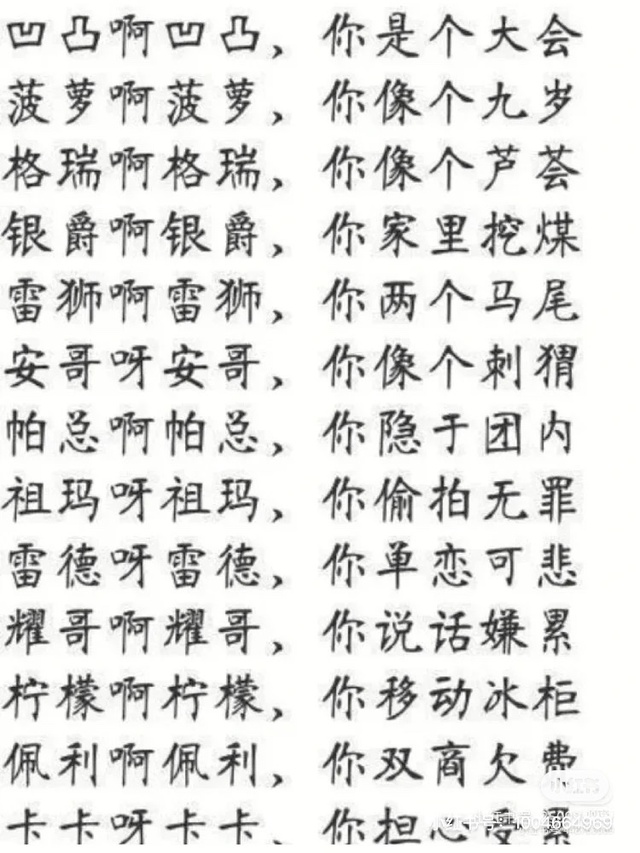 凹凸啊凹凸，你是个大会
菠萝啊菠萝，你像个九岁
格瑞啊格瑞，你像个芦荟
银爵啊银爵，你家里挖煤
雷狮啊雷狮，你两个马尾
安哥呀安哥，你像个刺猬
帕总啊帕总，你隐于团内
祖玛呀祖玛，你偷拍无罪
雷德呀雷德，你单恋可悲
耀哥啊耀哥，你说话嫌累
柠檬啊柠檬，你移动冰柜
佩利啊佩利，你双商欠费
卡卡呀卡卡，你担心受累
小红书